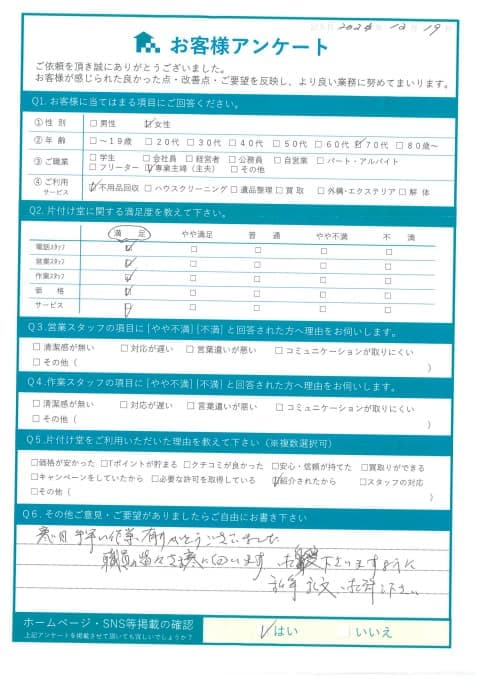 記入日 2024 12 19
お客様アンケート
ご依頼を頂き誠にありがとうございました。
お客様が感じられた良かった点・改善点・ご要望を反映し、より良い業務に努めてまいります。
Q1. お客様に当てはまる項目にご回答ください。
①性 別 □男性 ☑女性
②年 齢 □〜19歳 □20代 □30代 □40代 □50代 □60代 ☑70代 □80歳〜
③ご職業 □学生 □会社員 □経営者 □公務員 □自営業 □パート・アルバイト
□フリーター ☑専業主婦（主夫） □その他
④ご利用サービス ☑不用品回収 □ハウスクリーニング □遺品整理 □買取 □外構・エクステリア □解体
Q2. 片付け堂に関する満足度を教えて下さい。
満 足 やや満足 普 通 やや不満 不 満
電話スタッフ ☑ □ □ □ □
営業スタッフ ☑ □ □ □ □
作業スタッフ ☑ □ □ □ □
価 格 ☑ □ □ □ □
サービス ☑ □ □ □ □
Q3.営業スタッフの項目に[やや不満][不満]と回答された方へ理由をお伺いします。
□清潔感が無い □対応が遅い □言葉遣いが悪い □コミュニケーションが取りにくい
□その他（ ）
Q4.作業スタッフの項目に[やや不満][不満]と回答された方へ理由をお伺いします。
□清潔感が無い □対応が遅い □言葉遣いが悪い □コミュニケーションが取りにくい
□その他（ ）
Q5.片付け堂をご利用いただいた理由を教えて下さい（※複数選択可）
□価格が安かった □Tポイントが貯まる □クチコミが良かった □安心・信頼が持てた □買取りができる
□キャンペーンをしていたから □必要な許可を取得している ☑紹介されたから □スタッフの対応
□その他（ ）
Q6. その他ご意見・ご要望がありましたらご自由にお書き下さい
寒い日 手早い作業 有りがとうございました
職員の皆々さま 下さいますように
乱筆 乱文 お許し下さい
ホームページ・SNS等掲載の確認 ☑はい □いいえ
上記アンケートを掲載させて頂いても宜しいでしょうか？